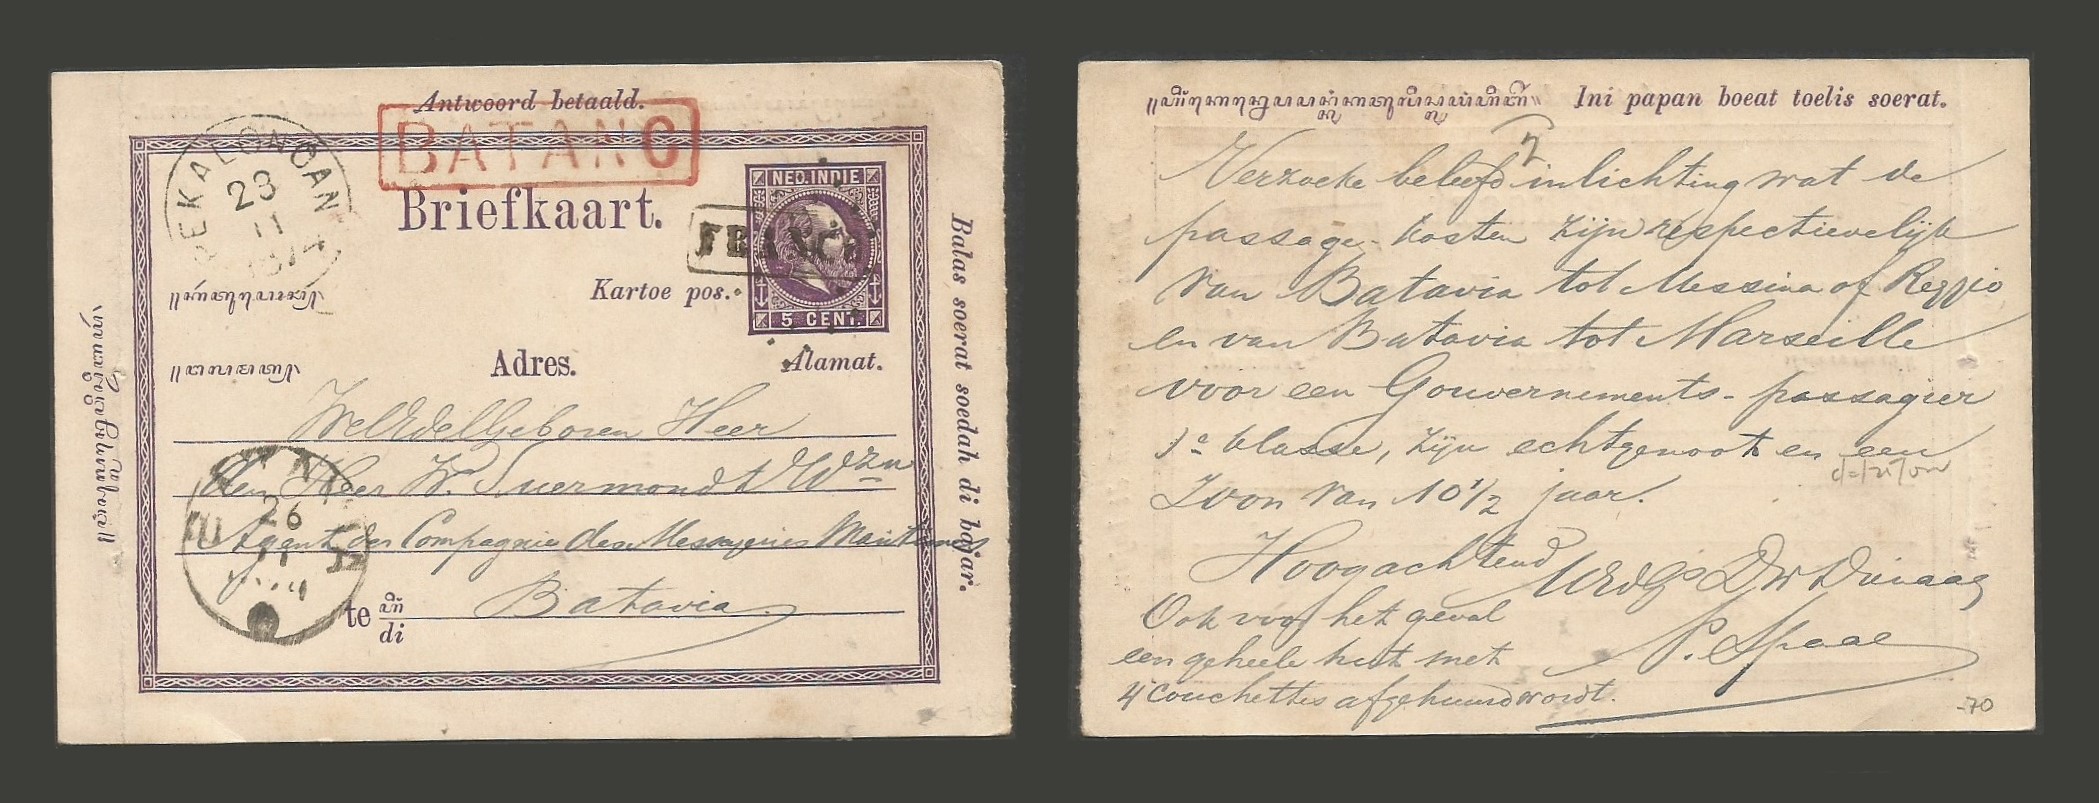 Antwoord betaald.
BATANG
PEKALONGAN
23
11
1874
NED. INDIE
Briefkaart.
FRANCO
Kartoe pos.
5 CENT.
Adres.
Alamat.
WelEdelGeboren Heer
den Heer W. Suermondt Wzn
Agent der Compagnie des Messageries Maritimes
26
11
te
di
Batavia
Balas soerat soedah di bajar.
Ini papan boeat toelis soerat.
2
Verzoeke beleefd inlichting wat de
passage-kosten zijn respectievelijk
van Batavia tot Messina of Reggio
en van Batavia tot Marseille
voor een Gouvernements-passagier
1e klasse, zijn echtgenoot en een
Zoon van 10 1/2 jaar.
Hoogachtend
UEdG Dw Dienaar
P. Spaae
Ook voor het geval
een geheele hut met
4 couchettes afgehuurd wordt.
-70